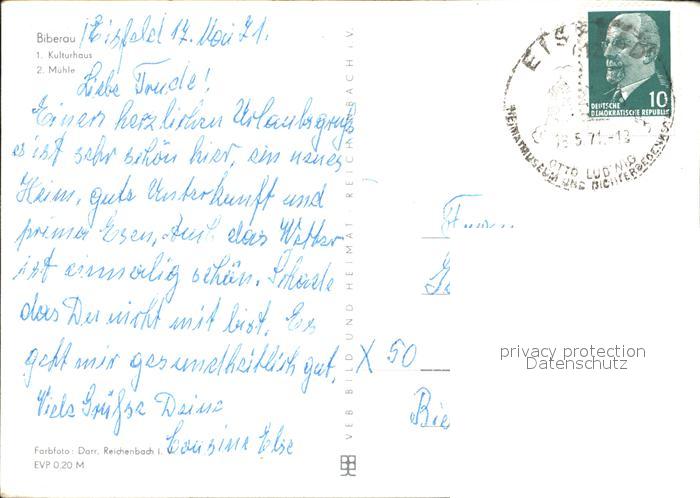 Biberau
1. Kulturhaus
2. Mühle
Eisfeld 17. Mai 71.
Liebe Trude!
Einen herzlichen Urlaubsgruß
es ist sehr schön hier, ein neues
Heim, gute Unterkunft und
prima Essen, Auch das Wetter
ist einmalig schön. Schade
das Du nicht mit bist. Es
geht mir gesundheitlich gut.
Viele Grüße Deine
Cousine Else
Farbfoto: Darr, Reichenbach i.
EVP 0,20 M
VEB BILD UND HEIMAT REICHENBACH i.V.
DEUTSCHE
DEMOKRATISCHE REPUBLIK
10
18.5.71.-13
OTTO LUDWIG
HEIMATMUSEUM UND DICHTERGEDENK
Frau
X 50
privacy protection
Datenschutz